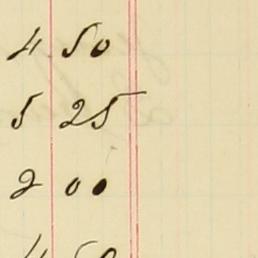 4 50
5 25
2 00
4 50